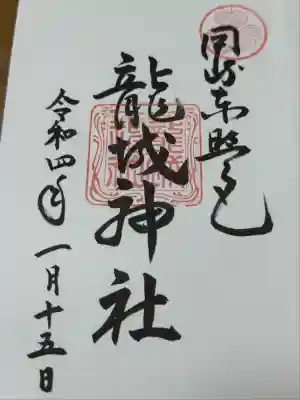 岡崎東照宮
龍城神社
令和四年
一月十五日